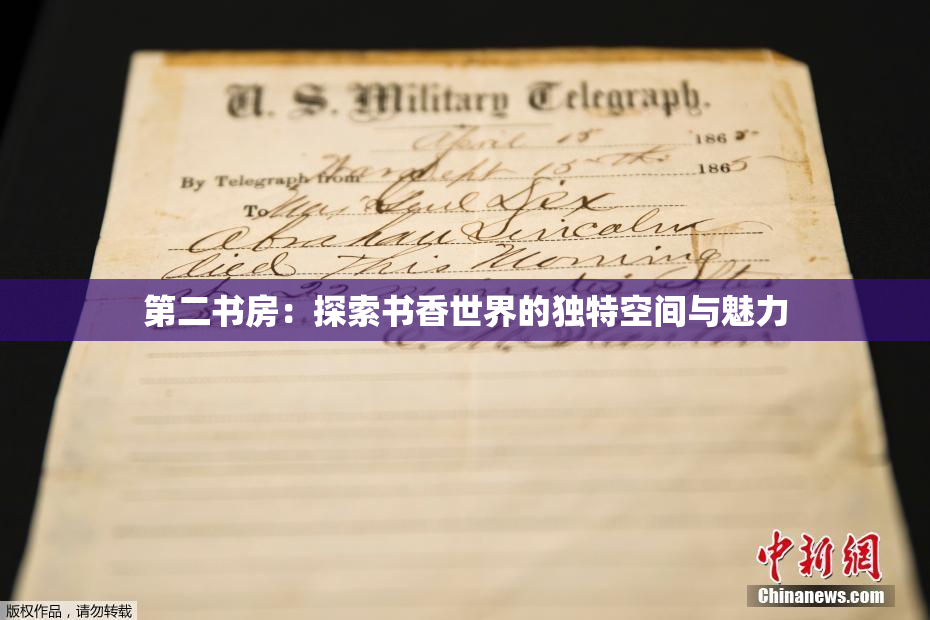 U. S. Military Telegraph.
April 15 1865
By Telegraph from War Dept 15th 1865
To Maj Genl Dix
Abraham Lincoln
died This Morning
22 minutes after
第二书房：探索书香世界的独特空间与魅力
E. M. Stanton
中新网
Chinanews.com
版权作品，请勿转载